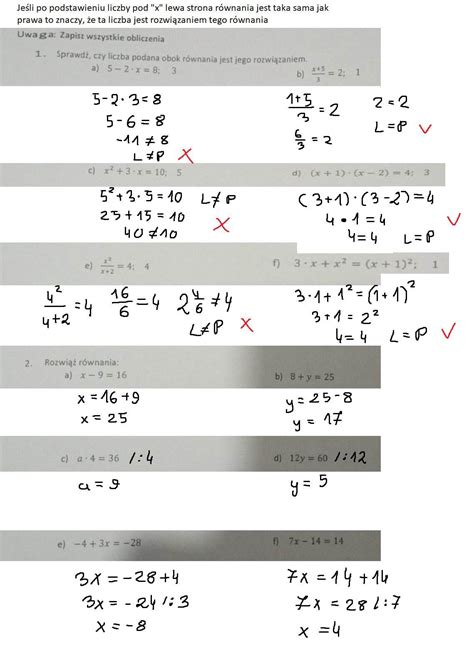 Jeśli po podstawieniu liczby pod "x" lewa strona równania jest taka sama jak
prawa to znaczy, że ta liczba jest rozwiązaniem tego równania
Uwaga: Zapisz wszystkie obliczenia
1. Sprawdź, czy liczba podana obok równania jest jego rozwiązaniem.
a) 5 − 2 · x = 8; 3
5 - 2 · 3 = 8
5 - 6 = 8
-11 ≠ 8
L ≠ P X
b) (x+5)/3 = 2; 1
(1+5)/3 = 2 2 = 2
6/3 = 2 L = P ✓
c) x² + 3 · x = 10; 5
5² + 3 · 5 = 10 L ≠ P
25 + 15 = 10 X
40 ≠ 10
d) (x + 1) · (x − 2) = 4; 3
(3+1) · (3-2) = 4
4 · 1 = 4 ✓
4 = 4 L = P
e) x²/(x+2) = 4; 4
4²/(4+2) = 4 16/6 = 4 2 4/6 ≠ 4
L ≠ P X
f) 3 · x + x² = (x + 1)²; 1
3 · 1 + 1² = (1+1)²
3 + 1 = 2²
4 = 4 L = P ✓
2. Rozwiąż równania:
a) x − 9 = 16
x = 16 + 9
x = 25
b) 8 + y = 25
y = 25 - 8
y = 17
c) a · 4 = 36 /:4
a = 9
d) 12y = 60 /:12
y = 5
e) −4 + 3x = −28
3x = -28 + 4
3x = -24 /:3
x = -8
f) 7x − 14 = 14
7x = 14 + 14
7x = 28 /:7
x = 4